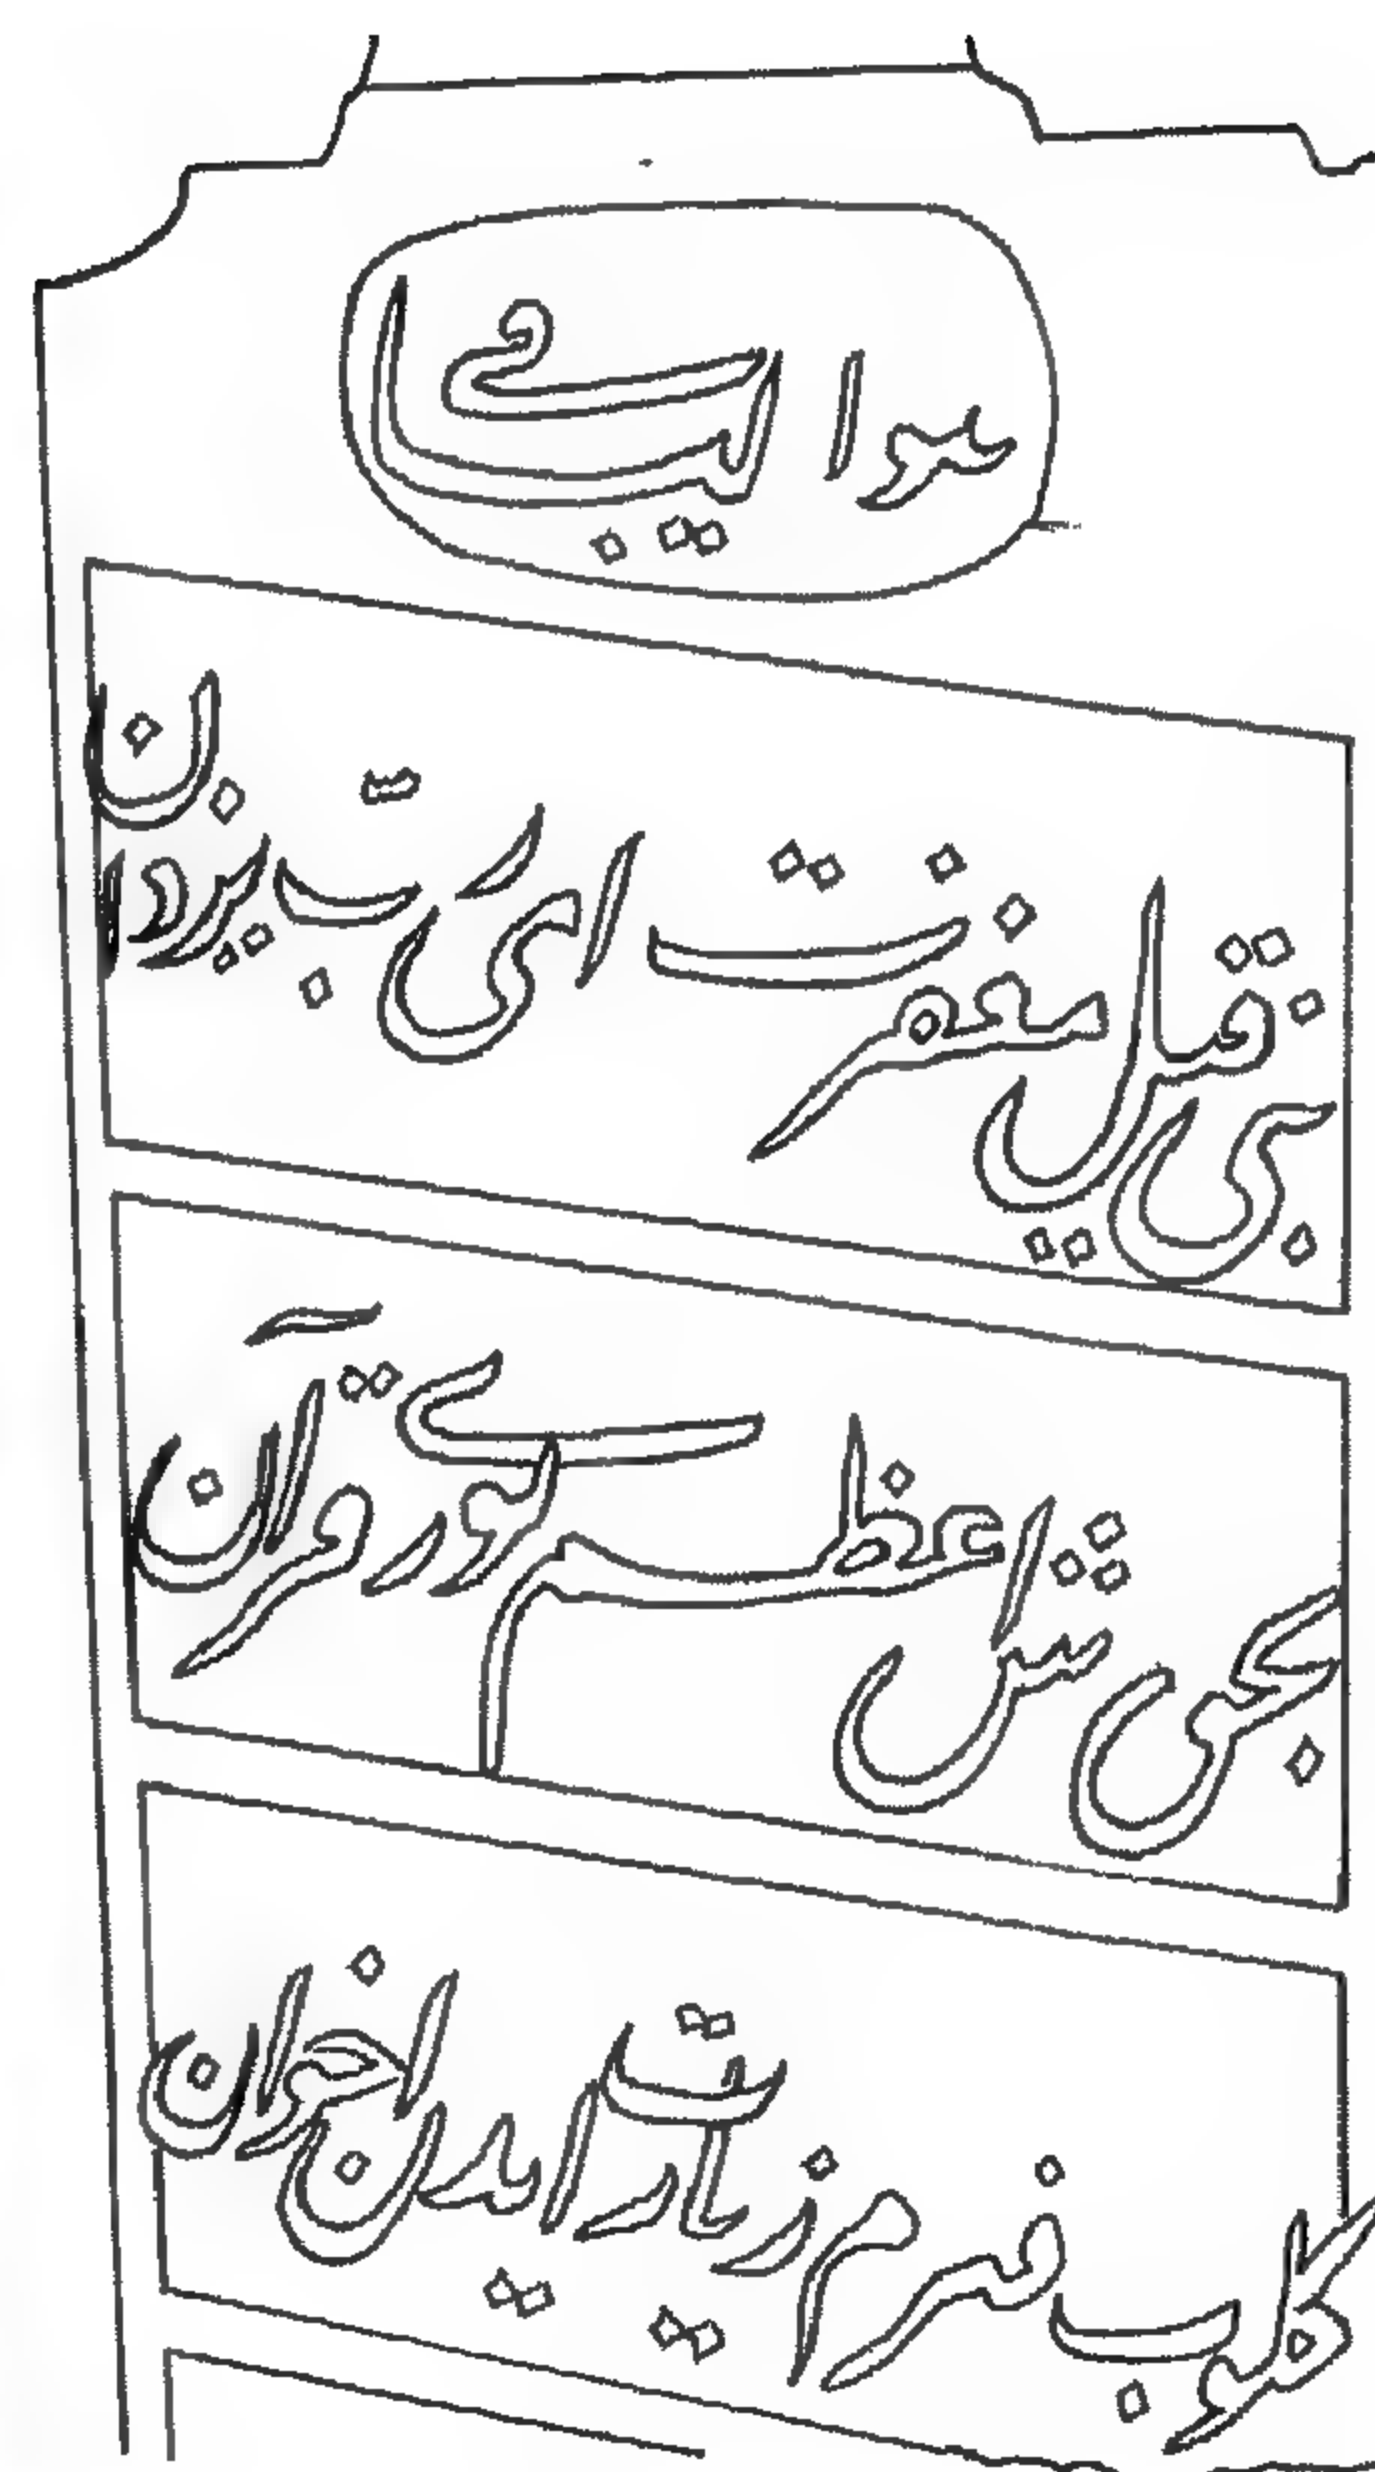 هو الباقى
بنى قيل مغفرت اى رب يزدان
بحق عرش اعظم نور قرآن
كلوب قبرم زيارت ايدن اخوان